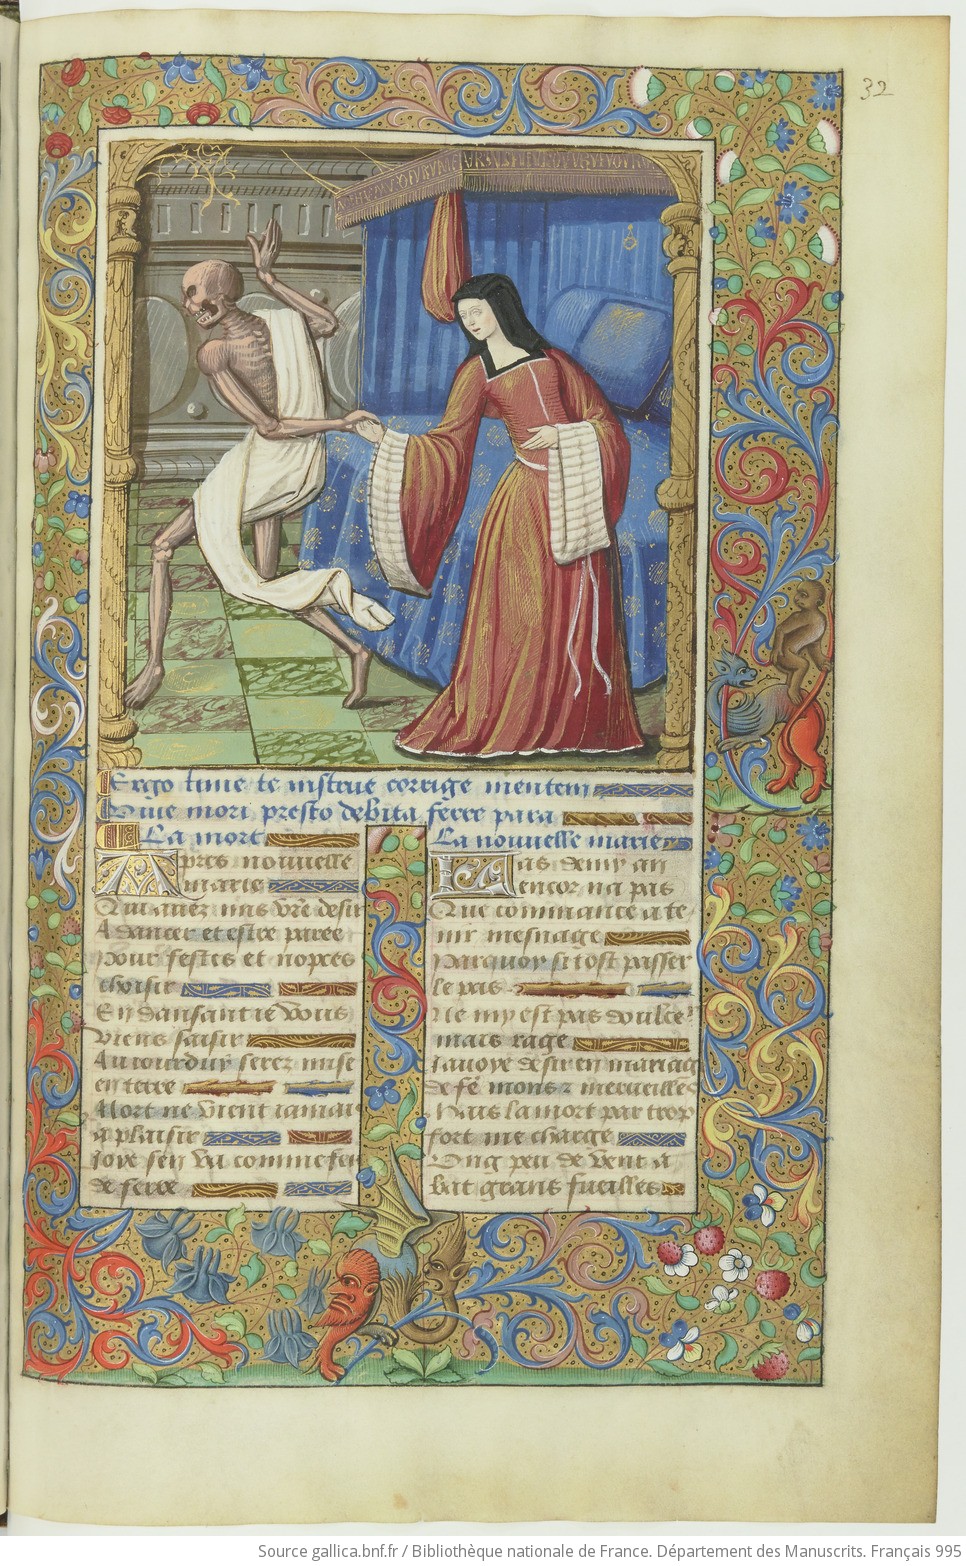 32
Ergo time te instrue corrige mentem
Que mori presto debita ferre para
La mort
Apres nouuelle
mariee
Qui auez mis vr̃e desir
A dancer et estre paree
Pour festes et nopces
choisir
En dansant ie vous
viens saisir
Au iourduy serez mise
en terre
Mort ne vient iamais
a plaisir
Joye sen va comme feu
de ferre
La nouuelle mariee
Las demy an
encor na pas
Que commance a te
nir mesnage
Parquoy si tost passer
le pas
Ne my est pas doulce
mais rage
Jauoye desir en mariag
de fe mons z merueilles
Mais la mort par trop
fort me charge
Ung peu de vent a
bat grans fueilles
Source gallica.bnf.fr / Bibliothèque nationale de France. Département des Manuscrits. Français 995